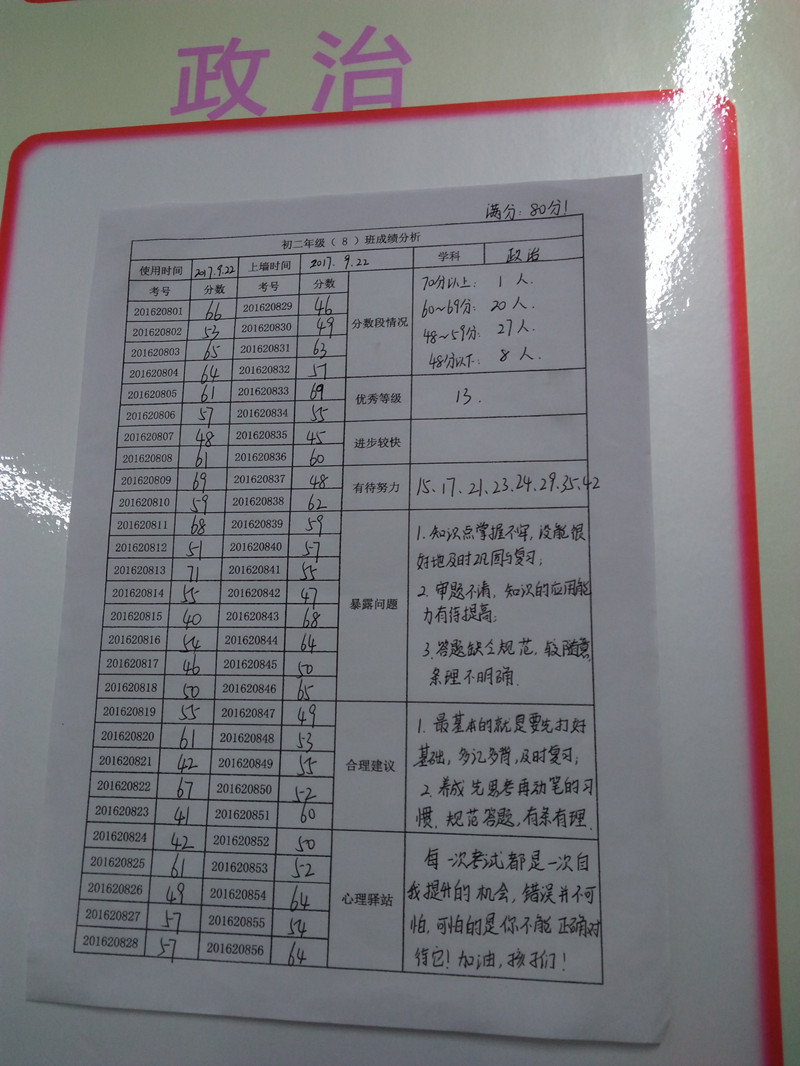 政治
满分：80分！
初二年级（8）班成绩分析
使用时间 2017.9.22 上墙时间 2017.9.22 学科 政治
考号 分数 考号 分数
201620801 66 201620829 46
201620802 53 201620830 49
201620803 65 201620831 63
201620804 64 201620832 57
201620805 61 201620833 69
201620806 57 201620834 55
201620807 48 201620835 45
201620808 61 201620836 60
201620809 69 201620837 48
201620810 59 201620838 62
201620811 68 201620839 59
201620812 51 201620840 57
201620813 71 201620841 55
201620814 55 201620842 47
201620815 40 201620843 68
201620816 54 201620844 64
201620817 46 201620845 50
201620818 50 201620846 65
201620819 55 201620847 49
201620820 61 201620848 53
201620821 42 201620849 55
201620822 67 201620850 52
201620823 41 201620851 60
201620824 42 201620852 50
201620825 61 201620853 52
201620826 49 201620854 64
201620827 57 201620855 54
201620828 57 201620856 64
分数段情况
70分以上：1人.
60~69分：20人.
48~59分：27人.
48分以下：8人.
优秀等级
13.
进步较快
有待努力
15、17、21、23、24、29、35、42
暴露问题
1.知识点掌握不牢，没能很
好地及时巩固与复习；
2.审题不清，知识的应用能
力有待提高；
3.答题缺乏规范，较随意，
条理不明确.
合理建议
1.最基本的就是要先打好
基础，多记多背，及时复习；
2.养成先思考再动笔的习
惯，规范答题，有条有理.
心理驿站
每一次考试都是一次自
我提升的机会，错误并不可
怕，可怕的是你不能正确对
待它！加油，孩子们！